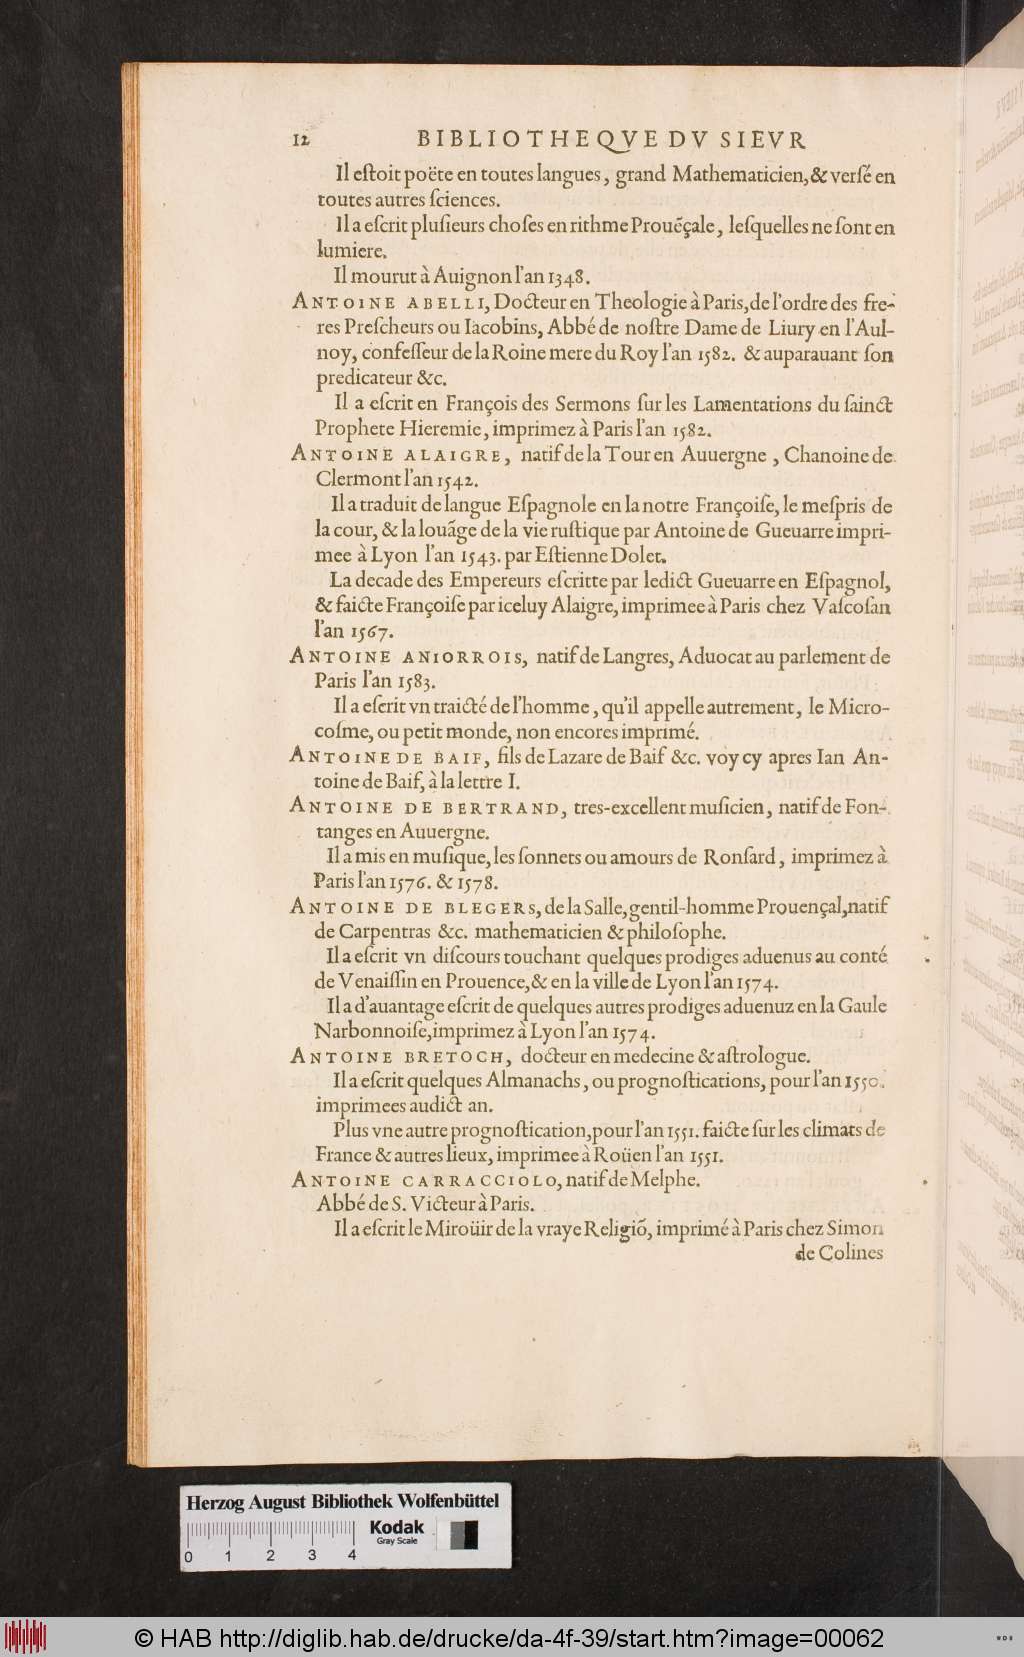 12 BIBLIOTHEQVE DV SIEVR
Il eſtoit poëte en toutes langues, grand Mathematicien, & verſé en
toutes autres ſciences.
Il a eſcrit pluſieurs choſes en rithme Prouẽçale, leſquelles ne ſont en
lumiere.
Il mourut à Auignon l'an 1348.
ANTOINE ABELLI, Docteur en Theologie à Paris, de l'ordre des fre-
res Preſcheurs ou Iacobins, Abbé de noſtre Dame de Liury en l'Aul-
noy, confeſſeur de la Roine mere du Roy l'an 1582. & auparauant ſon
predicateur &c.
Il a eſcrit en François des Sermons ſur les Lamentations du ſainct
Prophete Hieremie, imprimez à Paris l'an 1582.
ANTOINE ALAIGRE, natif de la Tour en Auuergne, Chanoine de
Clermont l'an 1542.
Il a traduit de langue Eſpagnole en la notre Françoiſe, le meſpris de
la cour, & la louãge de la vie ruſtique par Antoine de Gueuarre impri-
mee à Lyon l'an 1543. par Eſtienne Dolet.
La decade des Empereurs eſcritte par ledict Gueuarre en Eſpagnol,
& faicte Françoiſe par iceluy Alaigre, imprimee à Paris chez Vaſcoſan
l'an 1567.
ANTOINE ANIORROIS, natif de Langres, Aduocat au parlement de
Paris l'an 1583.
Il a eſcrit vn traicté de l'homme, qu'il appelle autrement, le Micro-
coſme, ou petit monde, non encores imprimé.
ANTOINE DE BAIF, fils de Lazare de Baif &c. voy cy apres Ian An-
toine de Baif, à la lettre I.
ANTOINE DE BERTRAND, tres-excellent muſicien, natif de Fon-
tanges en Auuergne.
Il a mis en muſique, les ſonnets ou amours de Ronſard, imprimez à
Paris l'an 1576. & 1578.
ANTOINE DE BLEGERS, de la Salle, gentil-homme Prouençal, natif
de Carpentras &c. mathematicien & philoſophe.
Il a eſcrit vn diſcours touchant quelques prodiges aduenus au conté
de Venaiſſin en Prouence, & en la ville de Lyon l'an 1574.
Il a d'auantage eſcrit de quelques autres prodiges aduenuz en la Gaule
Narbonnoiſe, imprimez à Lyon l'an 1574.
ANTOINE BRETOCH, docteur en medecine & aſtrologue.
Il a eſcrit quelques Almanachs, ou prognoſtications, pour l'an 1550.
imprimees audict an.
Plus vne autre prognoſtication, pour l'an 1551. faicte ſur les climats de
France & autres lieux, imprimee à Roüen l'an 1551.
ANTOINE CARRACCIOLO, natif de Melphe.
Abbé de S. Victeur à Paris.
Il a eſcrit le Miroüir de la vraye Religiõ, imprimé à Paris chez Simon
de Colines
Herzog August Bibliothek Wolfenbüttel
Kodak
Gray Scale
0 1 2 3 4
© HAB http://diglib.hab.de/drucke/da-4f-39/start.htm?image=00062